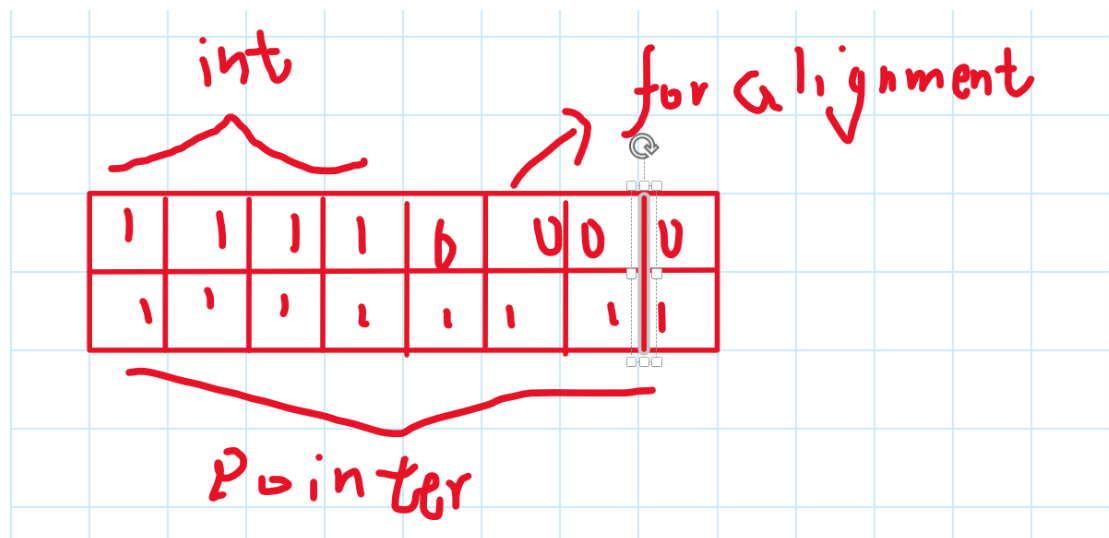 int
for alignment
1 1 1 1 0 0 0 0
1 1 1 1 1 1 1 1
Pointer